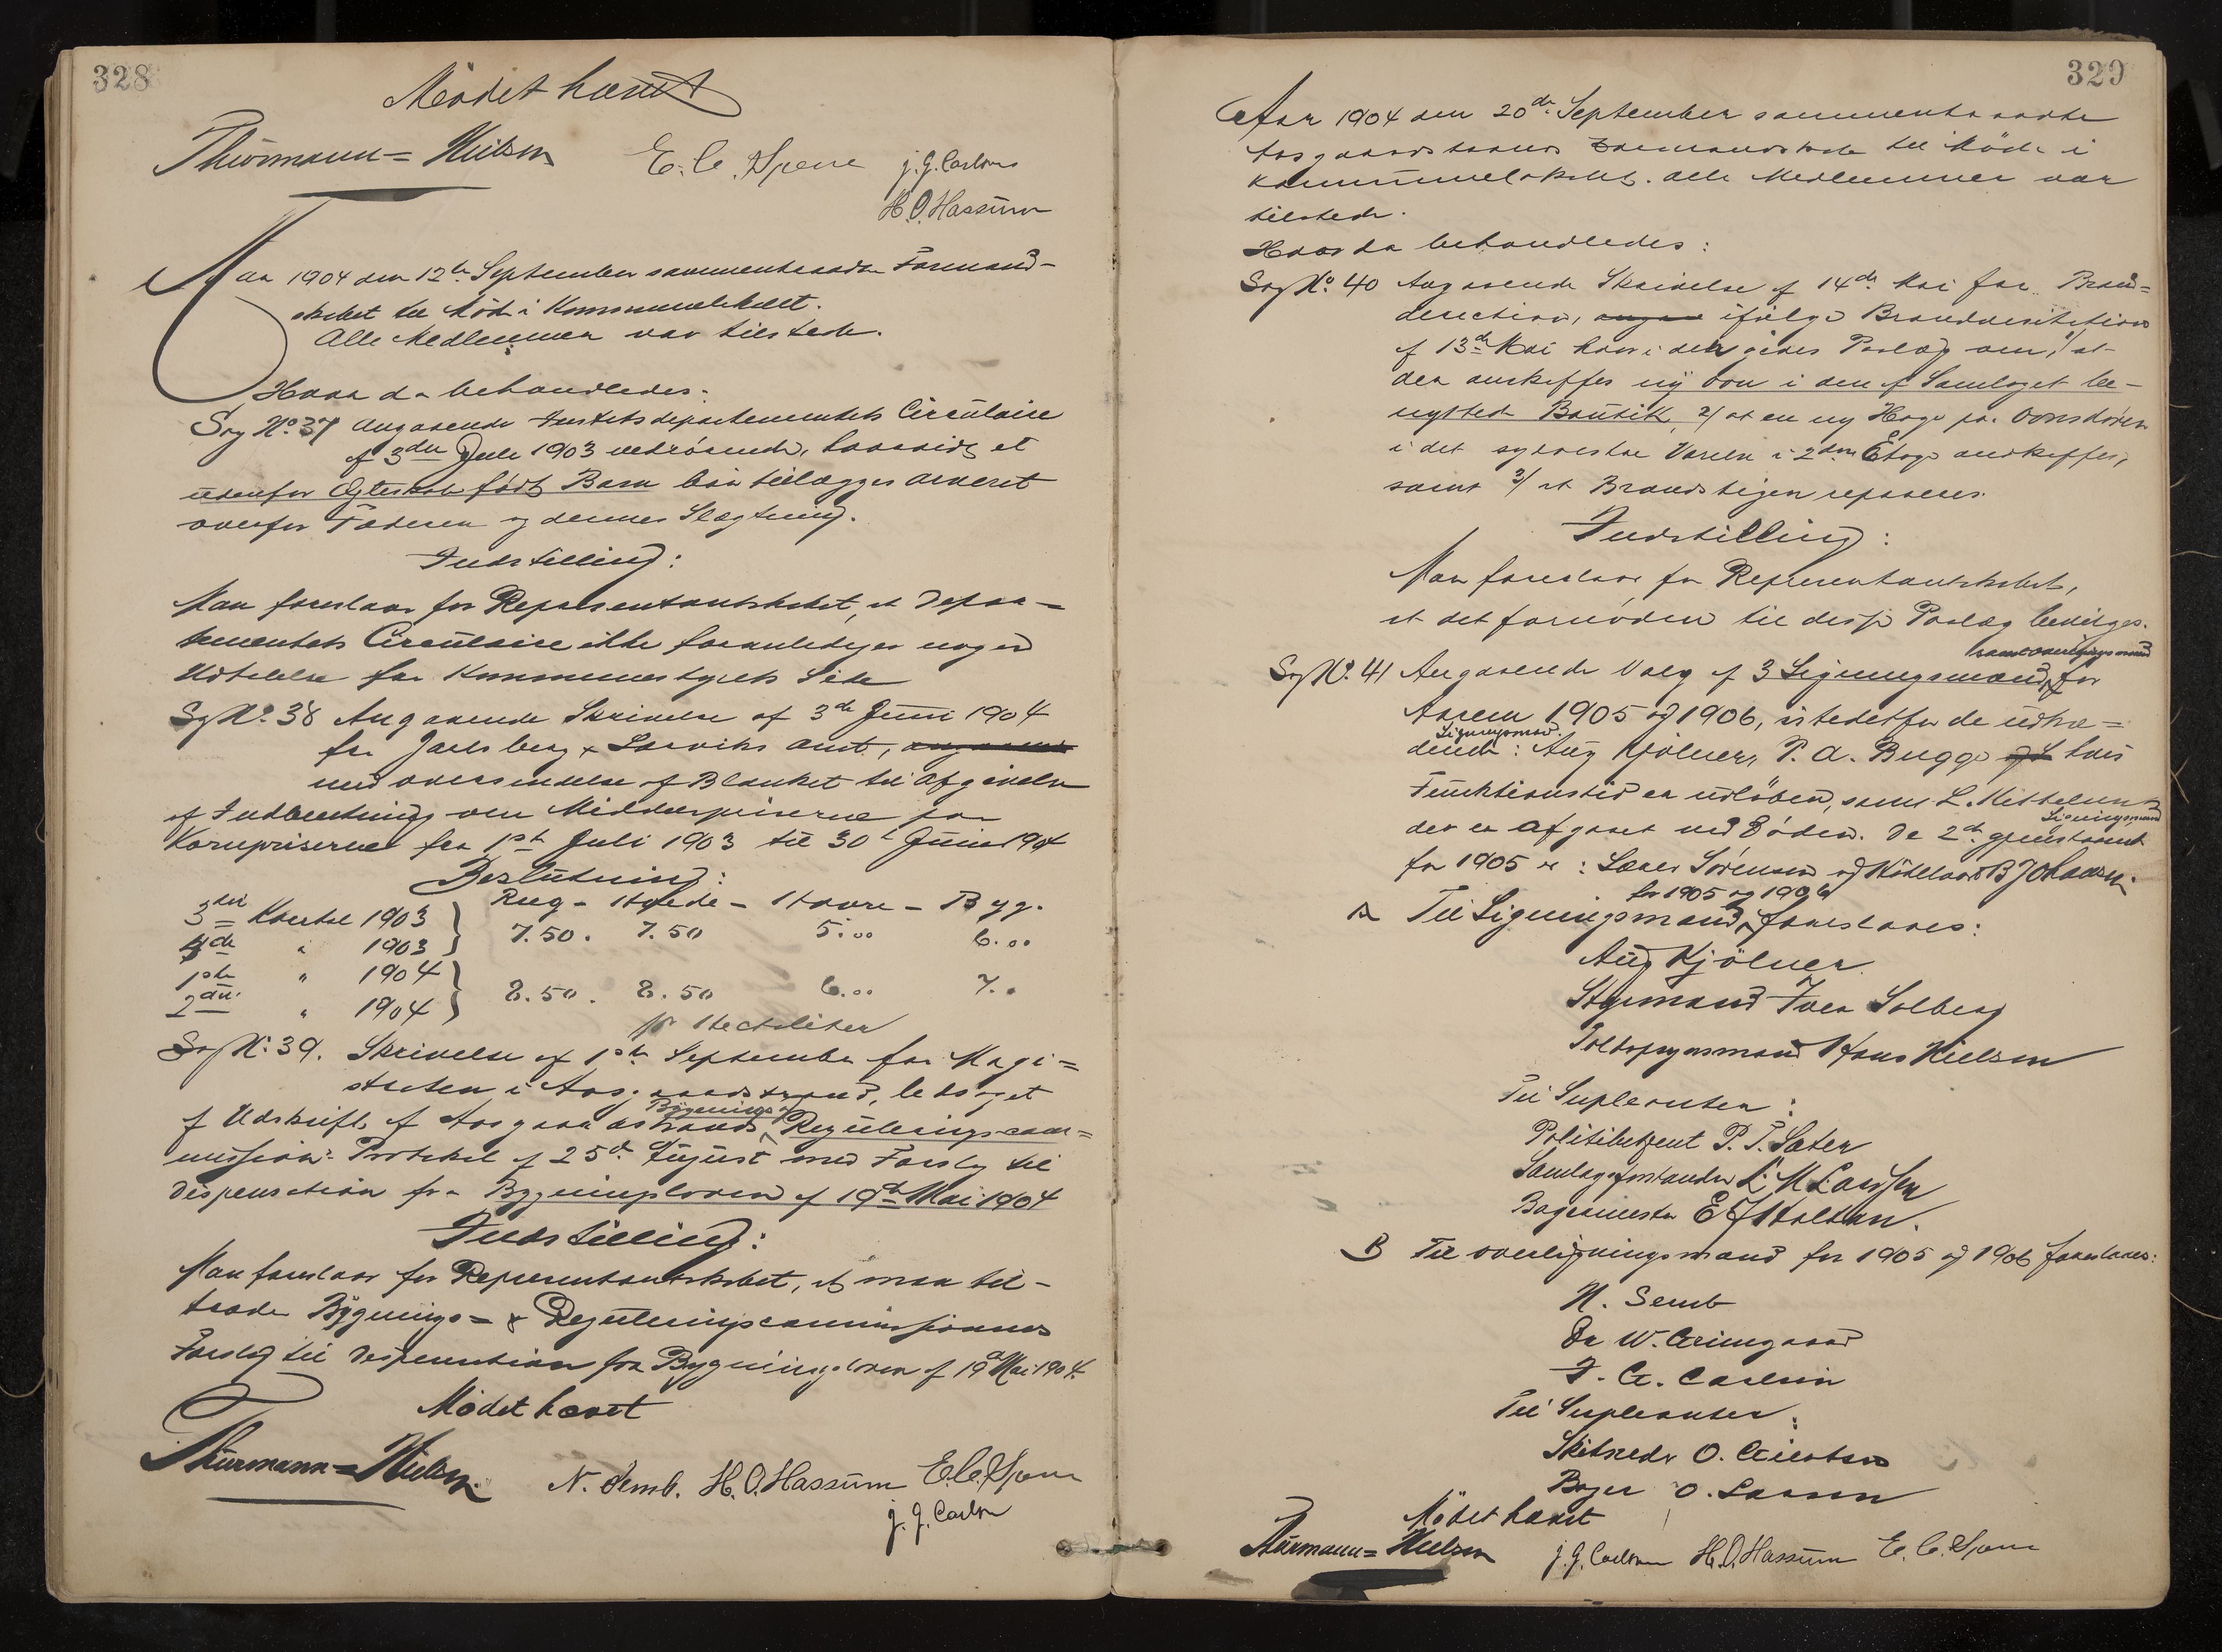 328
Mødet hævet
Thürmann=Nielsen E. C. Spone J. G. Carlsen
H. O. Hassum
Aar 1904 den 12te September sammentraadte Formand-
skabet til Møde i Kommunelokalet.
Alle Medlemmer var tilstede.
Hvor da behandledes:
Sag No. 37 Angaaende Justitsdepartementets Circulaire
af 3die Juli 1903 vedrørende, hvorvidt et
udenfor Ægteskab født Barn bør tillægges Arveret
overfor Faderen og dennes Slægtning.
Indstilling:
Man foreslaar for Repræsentantskabet, at Depar-
tementets Circulaire ikke foranlediger nogen
Udtalelse fra Kommunestyrets Side
Sag No. 38 Angaaende Skrivelse af 3de Juni 1904
fra Jarlsberg & Laurviks Amt, angaaende
med oversendelse af Blanket til Afgivelse
af Indberetning om Middelpriserne paa
Kornpriserne fra 1ste Juli 1903 til 30te Juni 1904
Beslutning:
Rug - Hvede - Havre - Byg.
3die Kvartal 1903
4de " 1903 } 7.50. 7.50 5.00 6.00
1ste " 1904
2det " 1904 } 8.50. 8.50 6.00 7.0
pr Hectoliter
Sag No. 39. Skrivelse af 1ste September fra Magi=
straten i Aasgaardstrand, ledsaget
Bygnings og
af Udskrift af Aasgaardstrands Reguleringscom=
missions Protokol af 25de August med Forslag til
Dispensation fra Bygningsloven af 19de Mai 1904
Indstilling:
Man foreslaar for Repræsentantskabet, at man til-
træder Bygnings= & Reguleringscommissionens
Forslag til Dispensation fra Bygningsloven af 19de Mai 1904.
Mødet hævet
Thurmann=Nielsen N. Semb. H. O. Hassum E. C. Spone
J. G. Carlsen
329
Aar 1904 den 20de September sammentraadte
Aasgaardstrands Formandskab til Møde i
Kommunelokalet. Alle Medlemmer var
tilstede.
Hvor da behandledes:
Sag No. 40 Angaaende Skrivelse af 14de Mai fra Brand=
direction, angaa ifølge Brandvisitation
af 13de Mai hvori der gives Paalæg om, 1/ at
der anskaffes ny Ovn i den af Samlaget be-
nyttede Boutik, 2/ at en ny Hage paa Ovnsdøren
i det sydvestre Værelse i 2den Etage anskaffes,
samt 3/ at Brandstigen repareres.
Indstilling:
Man foreslaar for Repræsentantskabet,
at det fornødne til disse Paalæg bevilges.
samt overligningsmænd
Sag No. 41 Angaaende Valg af 3 Ligningsmænd, for
Aarene 1905 og 1906, istedetfor de udtræ=
Ligningsmænd
dende: Aug Kjølner, P. A. Bugge hvis
Funktionstid er udløben, samt L. Mikkelsen
Ligningsmænd
der er afgaaet ved Døden. De 2de gjenstaaende
for 1905 er: Søren Sørensen og B Johansen.
for 1905 og 1906
A Til Ligningsmænd foreslaaes:
Aug Kjølner
Styrmand Iver Solberg
Toldopsynsmand Hans Nielsen
Til Supleanter:
Politibetjent P. T. Sater
Samlagsforstander L. M. Larssen
Bagermester E J Holtan.
B Til overligningsmænd for 1905 og 1906 foreslaaes:
N. Semb
Dr W. Grimgaard
J. G. Carlsen
Til Supleanter:
Skibsreder O. Ellefsen
Bager O. Larsen
Mødet hævet
Thurmann=Nielsen J. G. Carlsen H. O. Hassum E. C. Spone